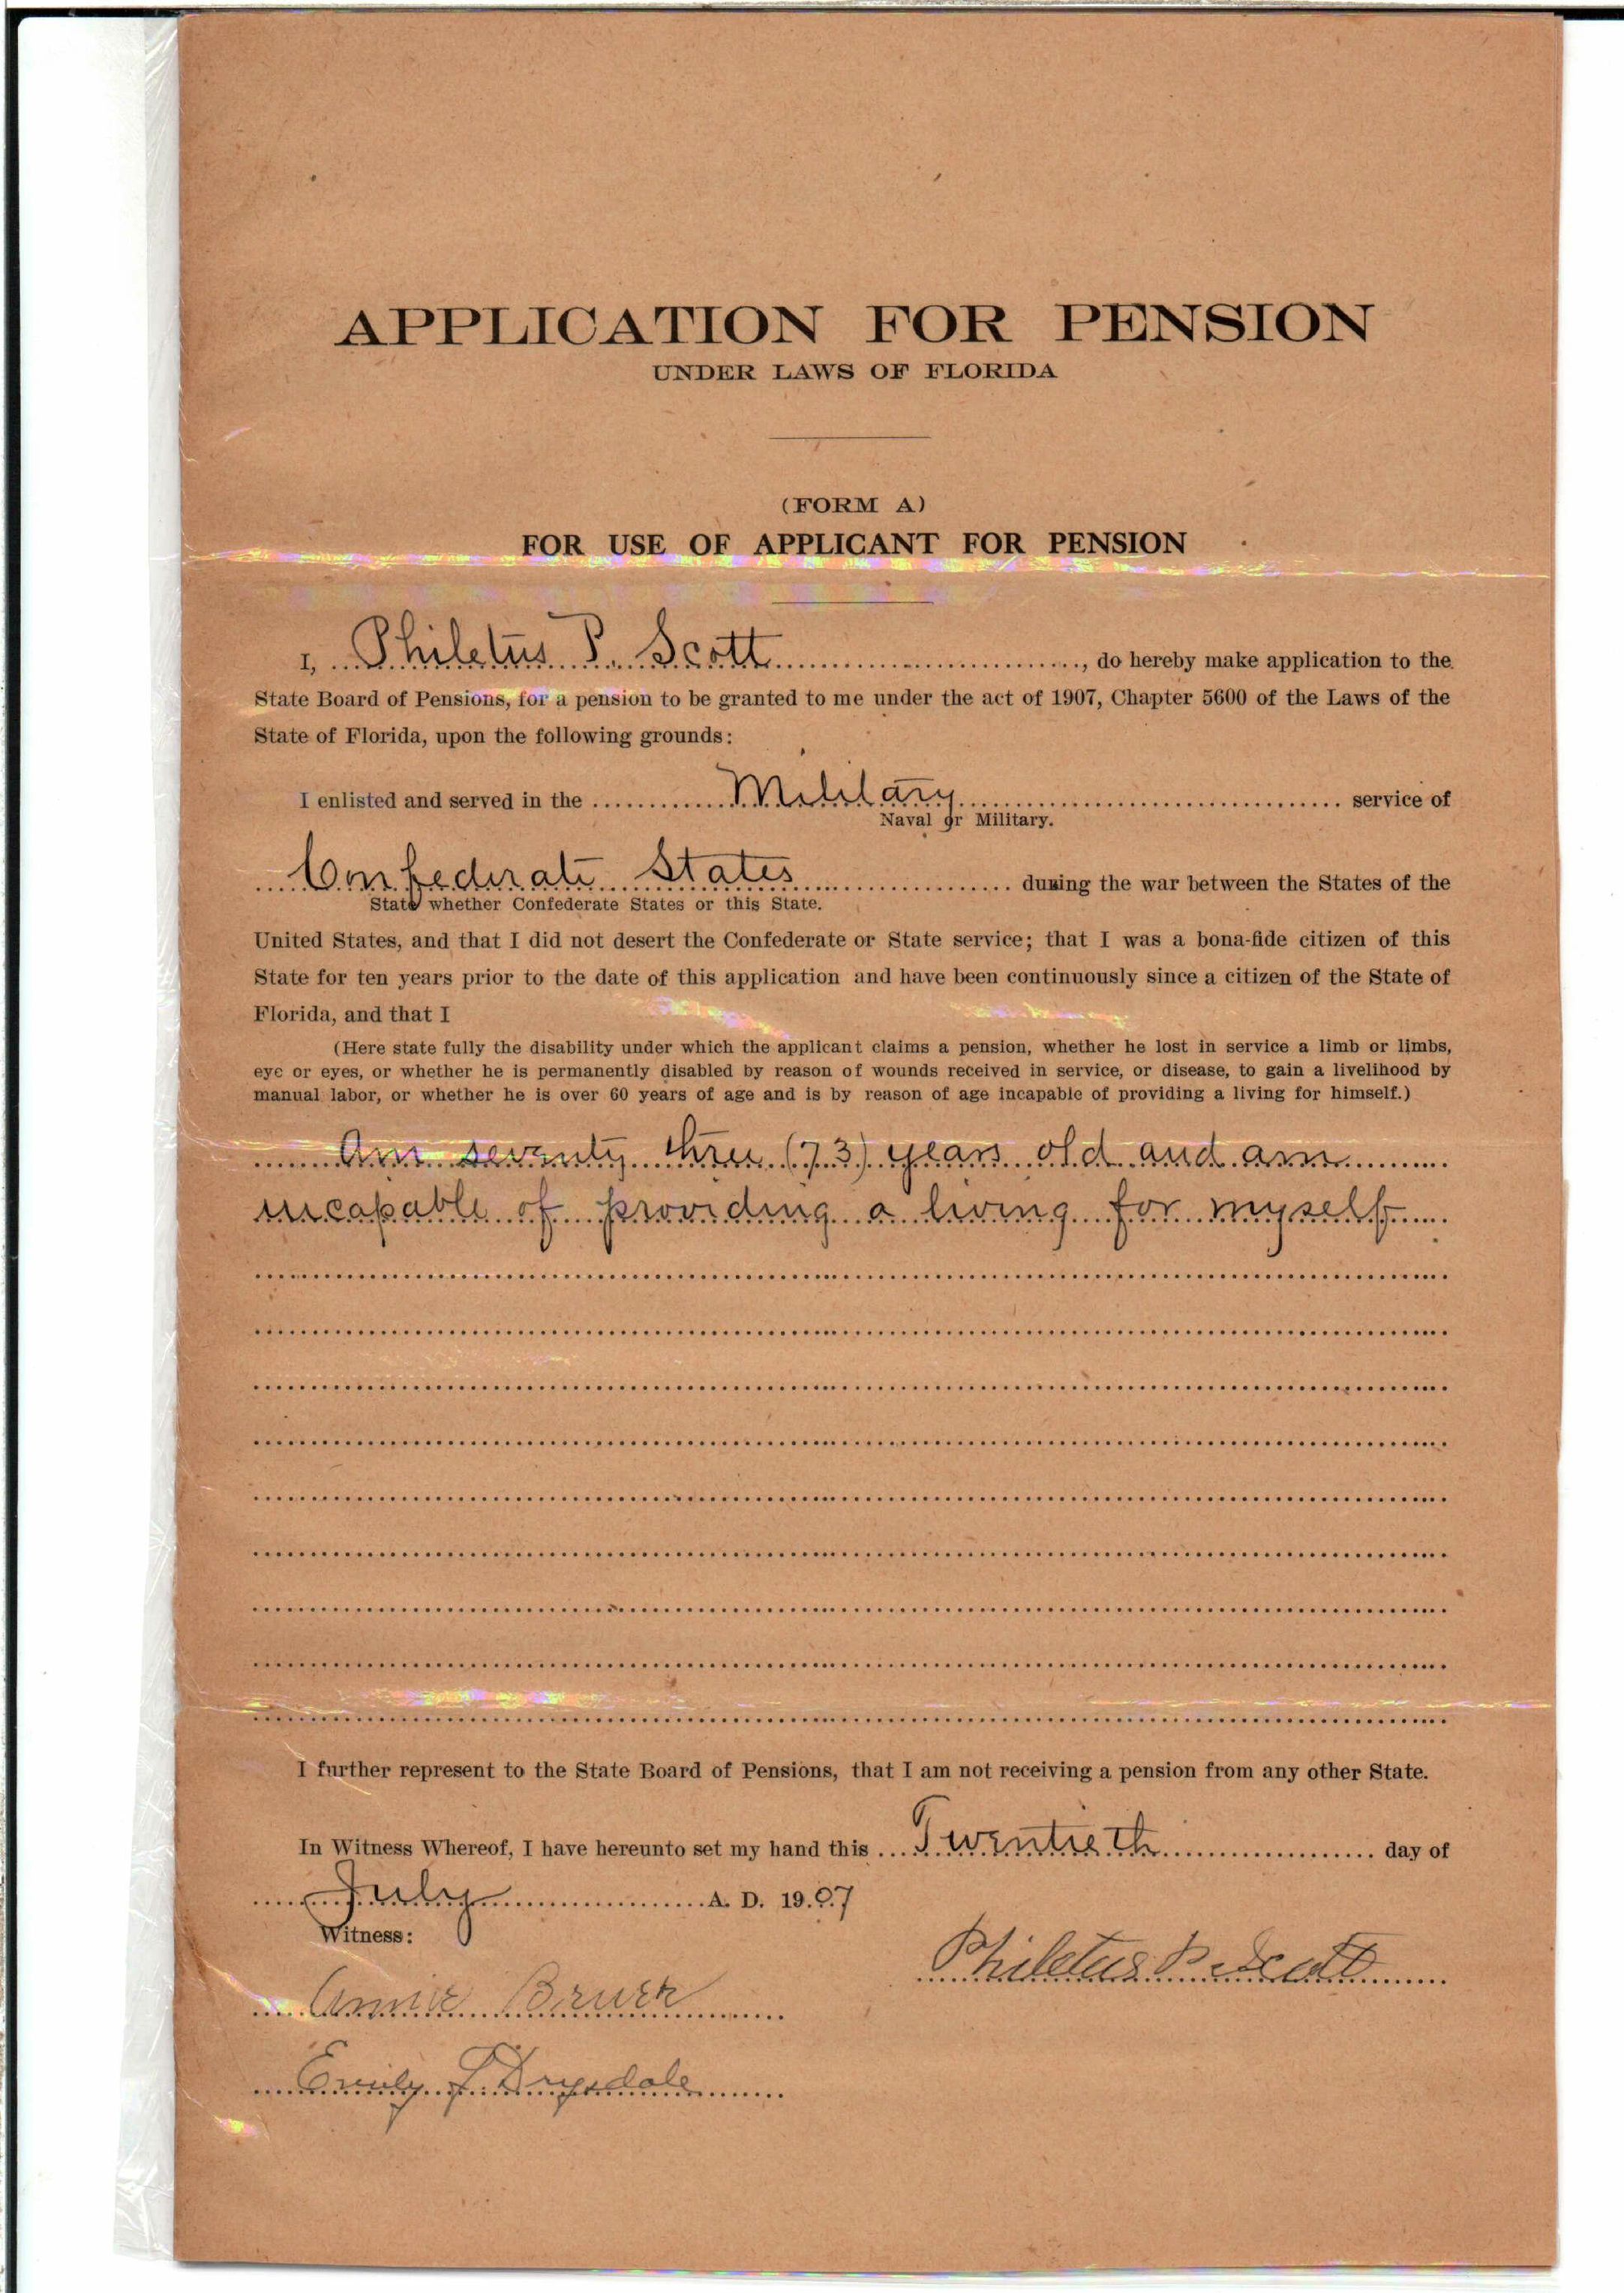 APPLICATION FOR PENSION
UNDER LAWS OF FLORIDA
(FORM A)
FOR USE OF APPLICANT FOR PENSION
I, Philetus P. Scott, do hereby make application to the
State Board of Pensions, for a pension to be granted to me under the act of 1907, Chapter 5600 of the Laws of the
State of Florida, upon the following grounds:
I enlisted and served in the Military service of
Naval or Military.
Confederate States during the war between the States of the
State whether Confederate States or this State.
United States, and that I did not desert the Confederate or State service; that I was a bona-fide citizen of this
State for ten years prior to the date of this application and have been continuously since a citizen of the State of
Florida, and that I
(Here state fully the disability under which the applicant claims a pension, whether he lost in service a limb or limbs,
eye or eyes, or whether he is permanently disabled by reason of wounds received in service, or disease, to gain a livelihood by
manual labor, or whether he is over 60 years of age and is by reason of age incapable of providing a living for himself.)
Am seventy three (73) years old and am
incapable of providing a living for myself
I further represent to the State Board of Pensions, that I am not receiving a pension from any other State.
In Witness Whereof, I have hereunto set my hand this Twentieth day of
July A. D. 1907
Witness:
Philetus P. Scott
Annie
Emily L. Drysdale